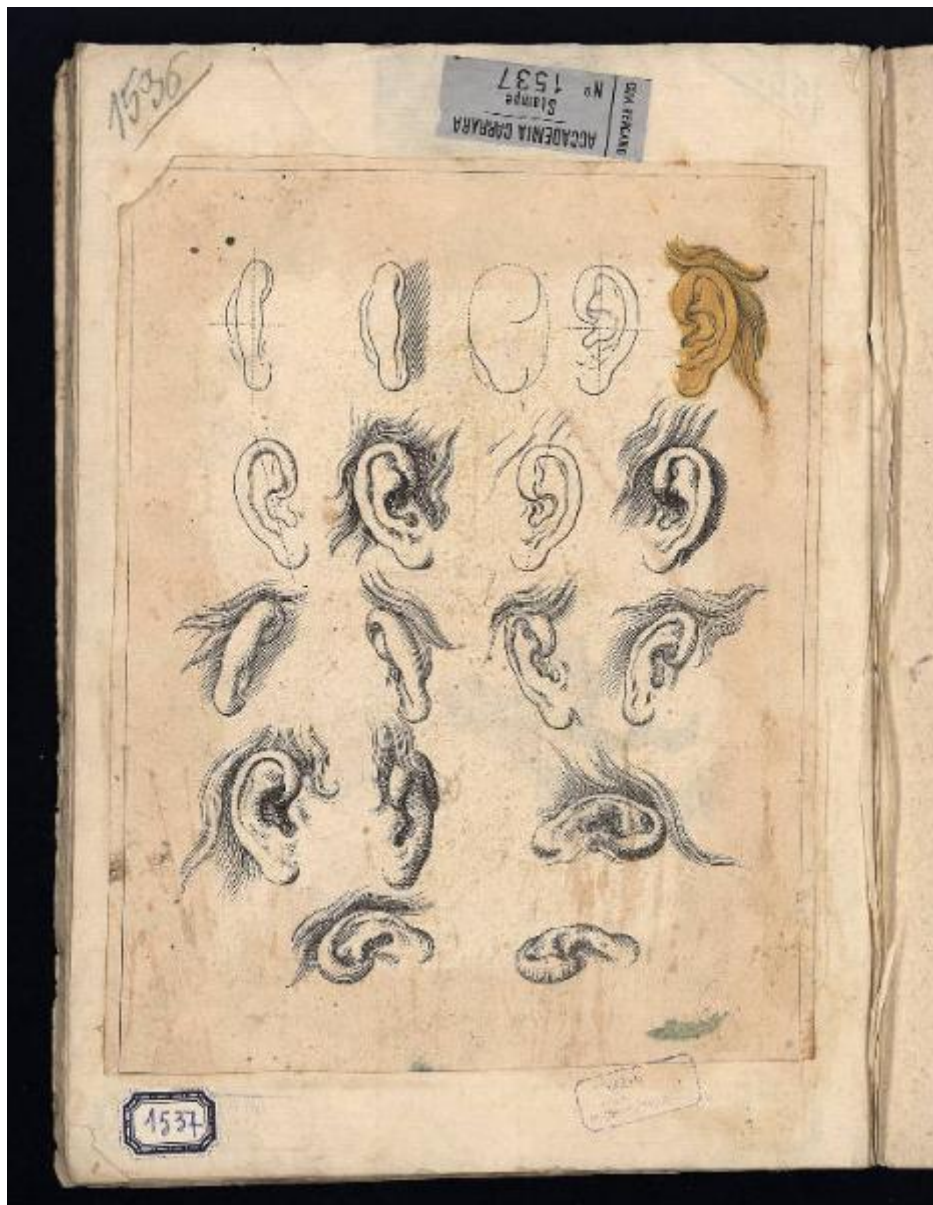 1536
ACCADEMIA CARRARA
Stampe
Nº 1537
BERGAMO
1537